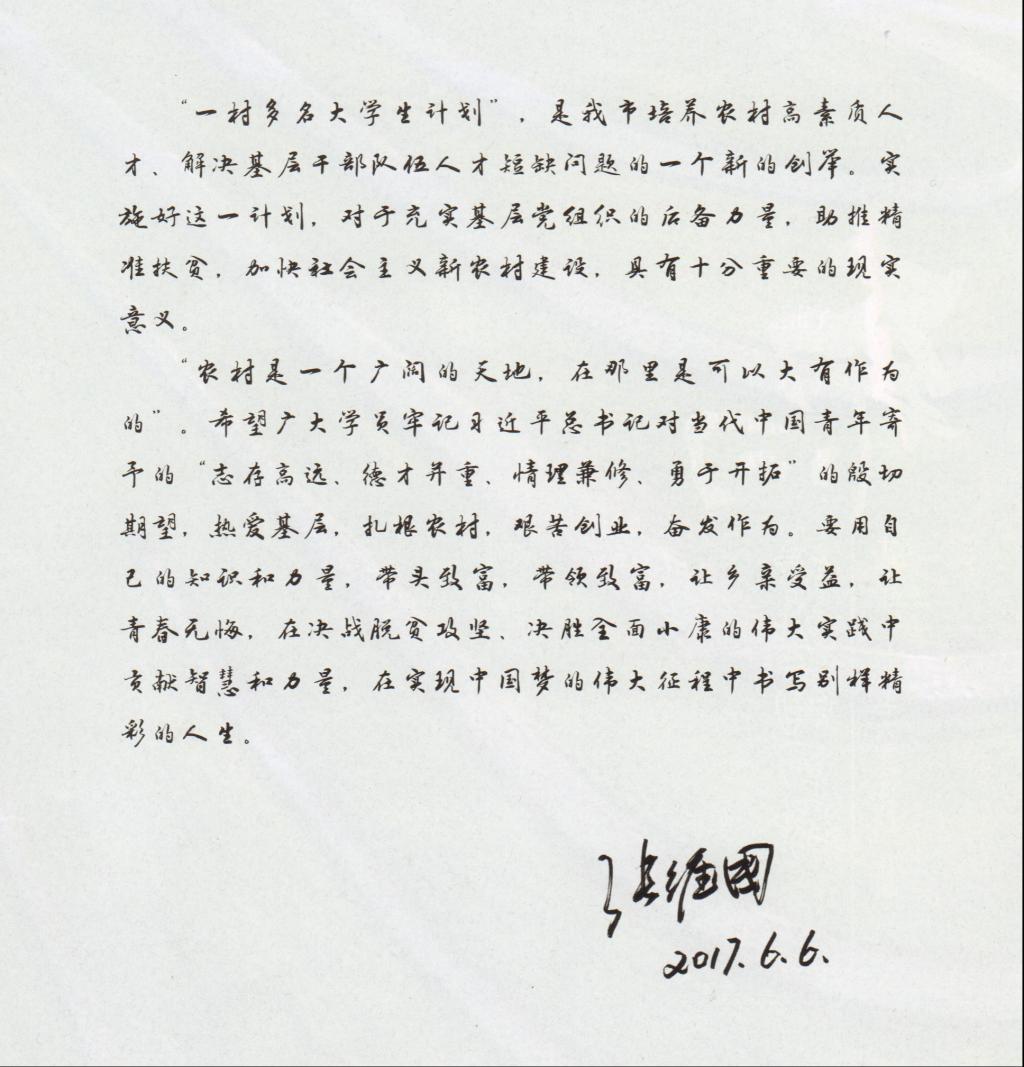 “一村多名大学生计划”，是我市培养农村高素质人
才、解决基层干部队伍人才短缺问题的一个新的创举。实
施好这一计划，对于充实基层党组织的后备力量，助推精
准扶贫，加快社会主义新农村建设，具有十分重要的现实
意义。
“农村是一个广阔的天地，在那里是可以大有作为
的”。希望广大学员牢记习近平总书记对当代中国青年寄
予的“志存高远、德才并重、情理兼修、勇于开拓”的殷切
期望，热爱基层，扎根农村，艰苦创业，奋发作为。要用自
己的知识和力量，带头致富，带领致富，让乡亲受益，让
青春无悔，在决战脱贫攻坚、决胜全面小康的伟大实践中
贡献智慧和力量，在实现中国梦的伟大征程中书写别样精
彩的人生。
张维國
2017.6.6.